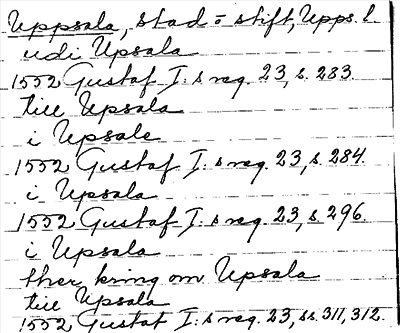 Uppsala, stad o stift, Upps. l.
udi Upsala
1552 Gustaf I:s reg. 23, s. 283.
till Upsala
i Upsale
1552 Gustaf I:s reg. 23, s. 284.
i Upsala
1552 Gustaf I:s reg. 23, s. 296.
i Upsala
ther kring om Upsala
till Upsala
1552 Gustaf I:s reg. 23, ss. 311, 312.